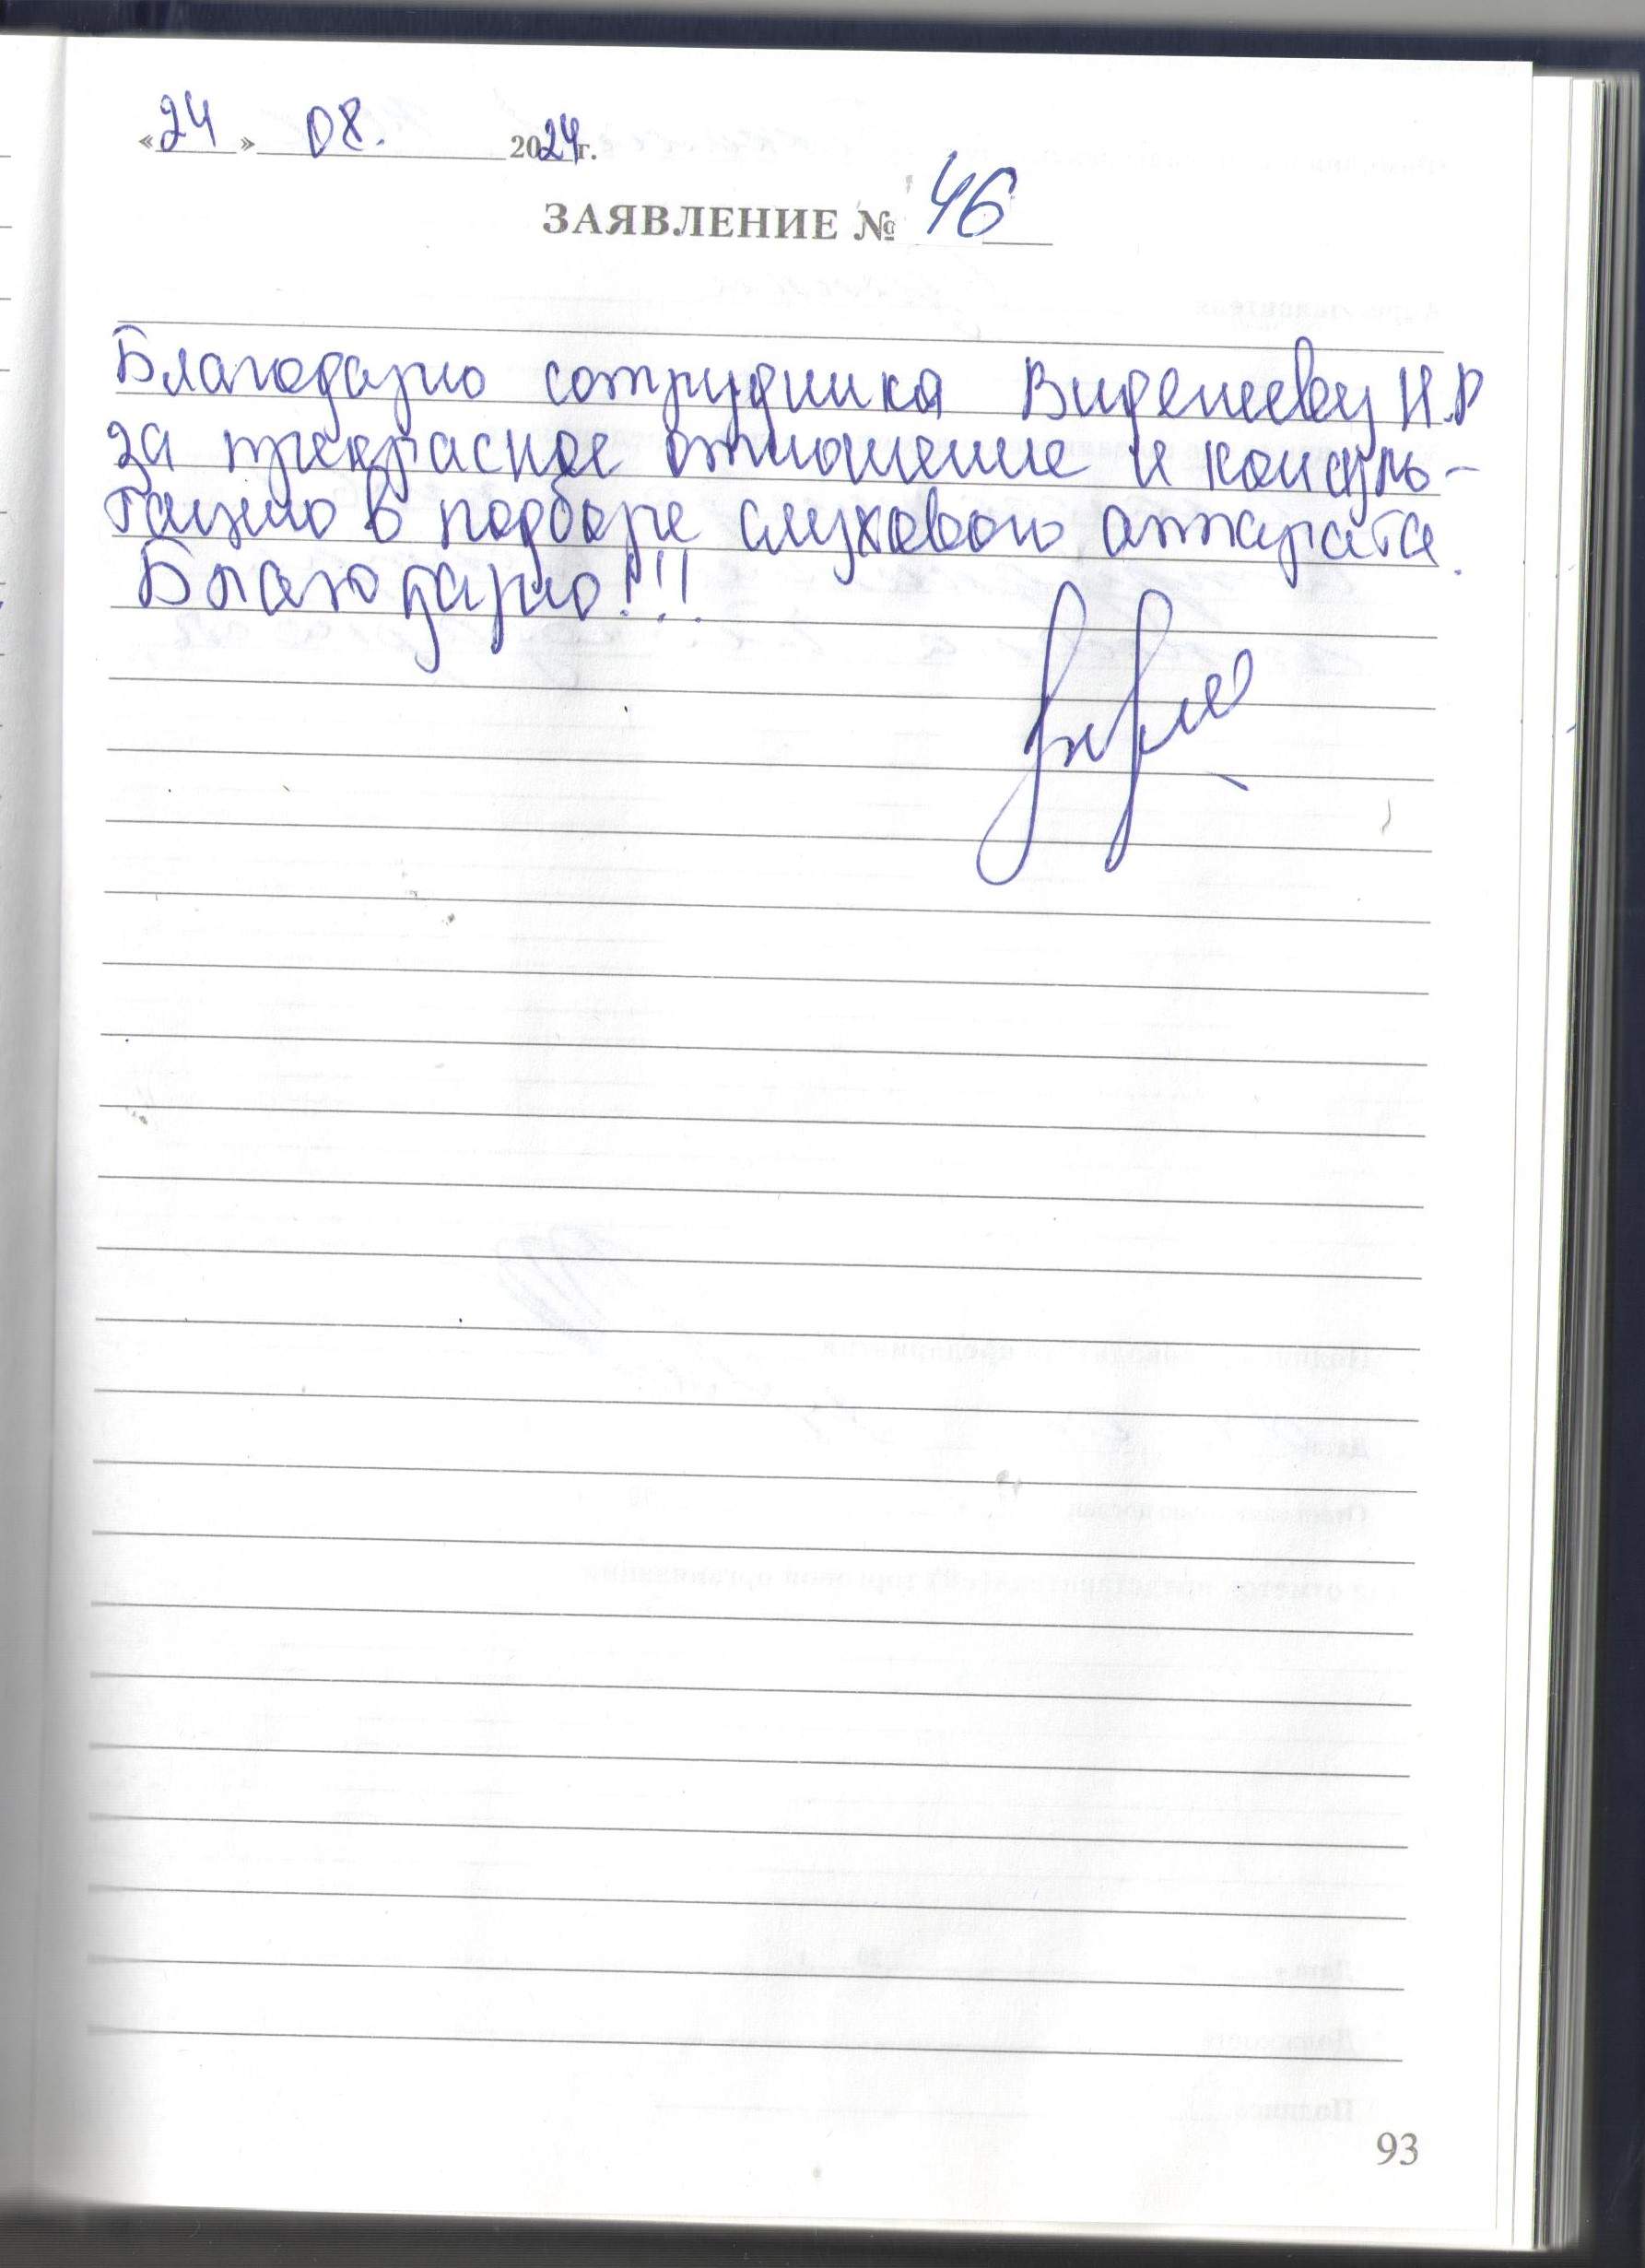 «24» 08. 2024г.
ЗАЯВЛЕНИЕ № 46
Благодарю сотрудника Виденееву Н.Р
за прекрасное отношение и консуль-
тацию в подборе слухового аппарата.
Благодарю!!!
93